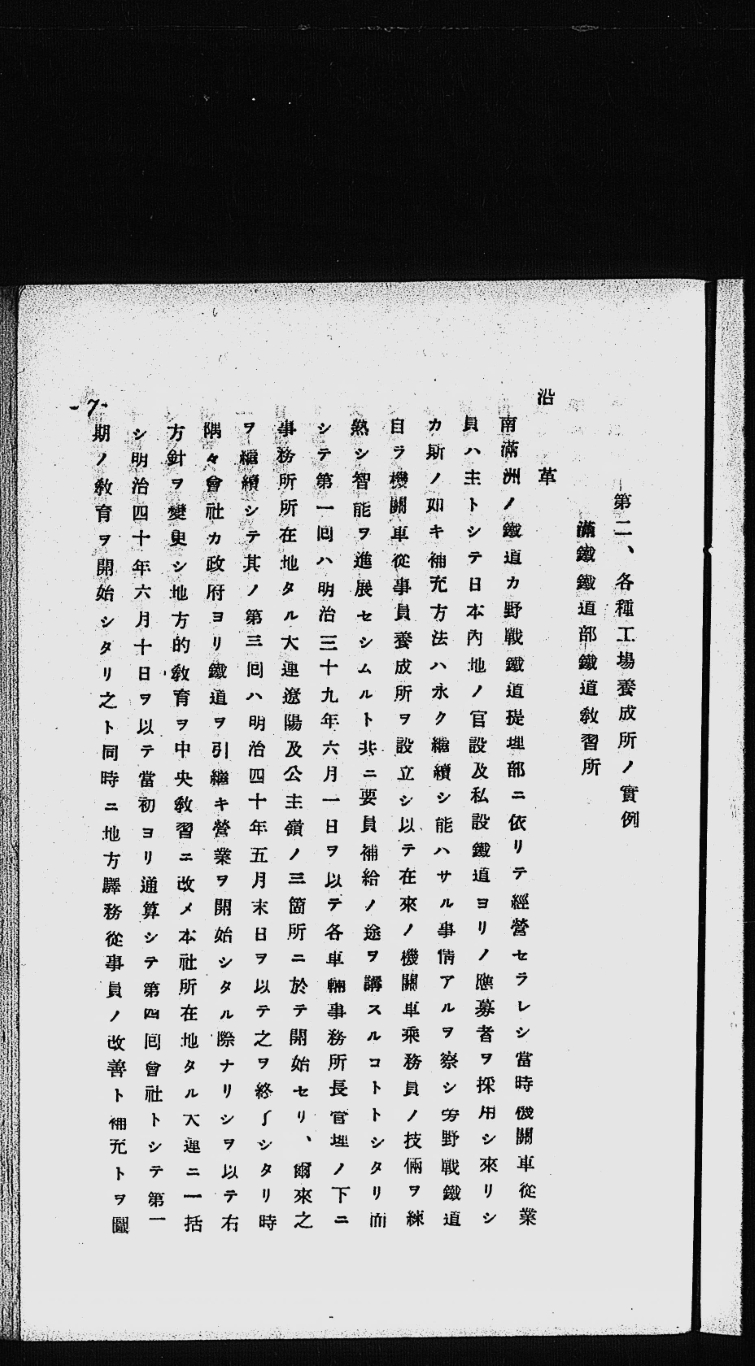 第二、各種工場養成所ノ實例
滿鐵鐵道部鐵道敎習所
沿革
南滿洲ノ鐵道カ野戰鐵道提理部ニ依リテ經營セラレシ當時機關車從業
員ハ主トシテ日本內地ノ官設及私設鐵道ヨリノ應募者ヲ採用シ來リシ
カ斯ノ如キ補充方法ハ永ク繼續シ能ハサル事情アルヲ察シ旁野戰鐵道
自ラ機關車從事員養成所ヲ設立シ以テ在來ノ機關車乘務員ノ技倆ヲ練
熟シ智能ヲ進展セシムルト共ニ要員補給ノ途ヲ講スルコトトシタリ而
シテ第一回ハ明治三十九年六月一日ヲ以テ各車輛事務所長管理ノ下ニ
事務所所在地タル大連遼陽及公主嶺ノ三箇所ニ於テ開始セリ、爾來之
ヲ繼續シテ其ノ第三回ハ明治四十年五月末日ヲ以テ之ヲ終了シタリ時
隅々會社カ政府ヨリ鐵道ヲ引繼キ營業ヲ開始シタル際ナリシヲ以テ右
方針ヲ變更シ地方的敎育ヲ中央敎習ニ改メ本社所在地タル大連ニ一括
シ明治四十年六月十日ヲ以テ當初ヨリ通算シテ第四回會社トシテ第一
期ノ敎育ヲ開始シタリ之ト同時ニ地方驛務從事員ノ改善ト補充トヲ圖
-7-